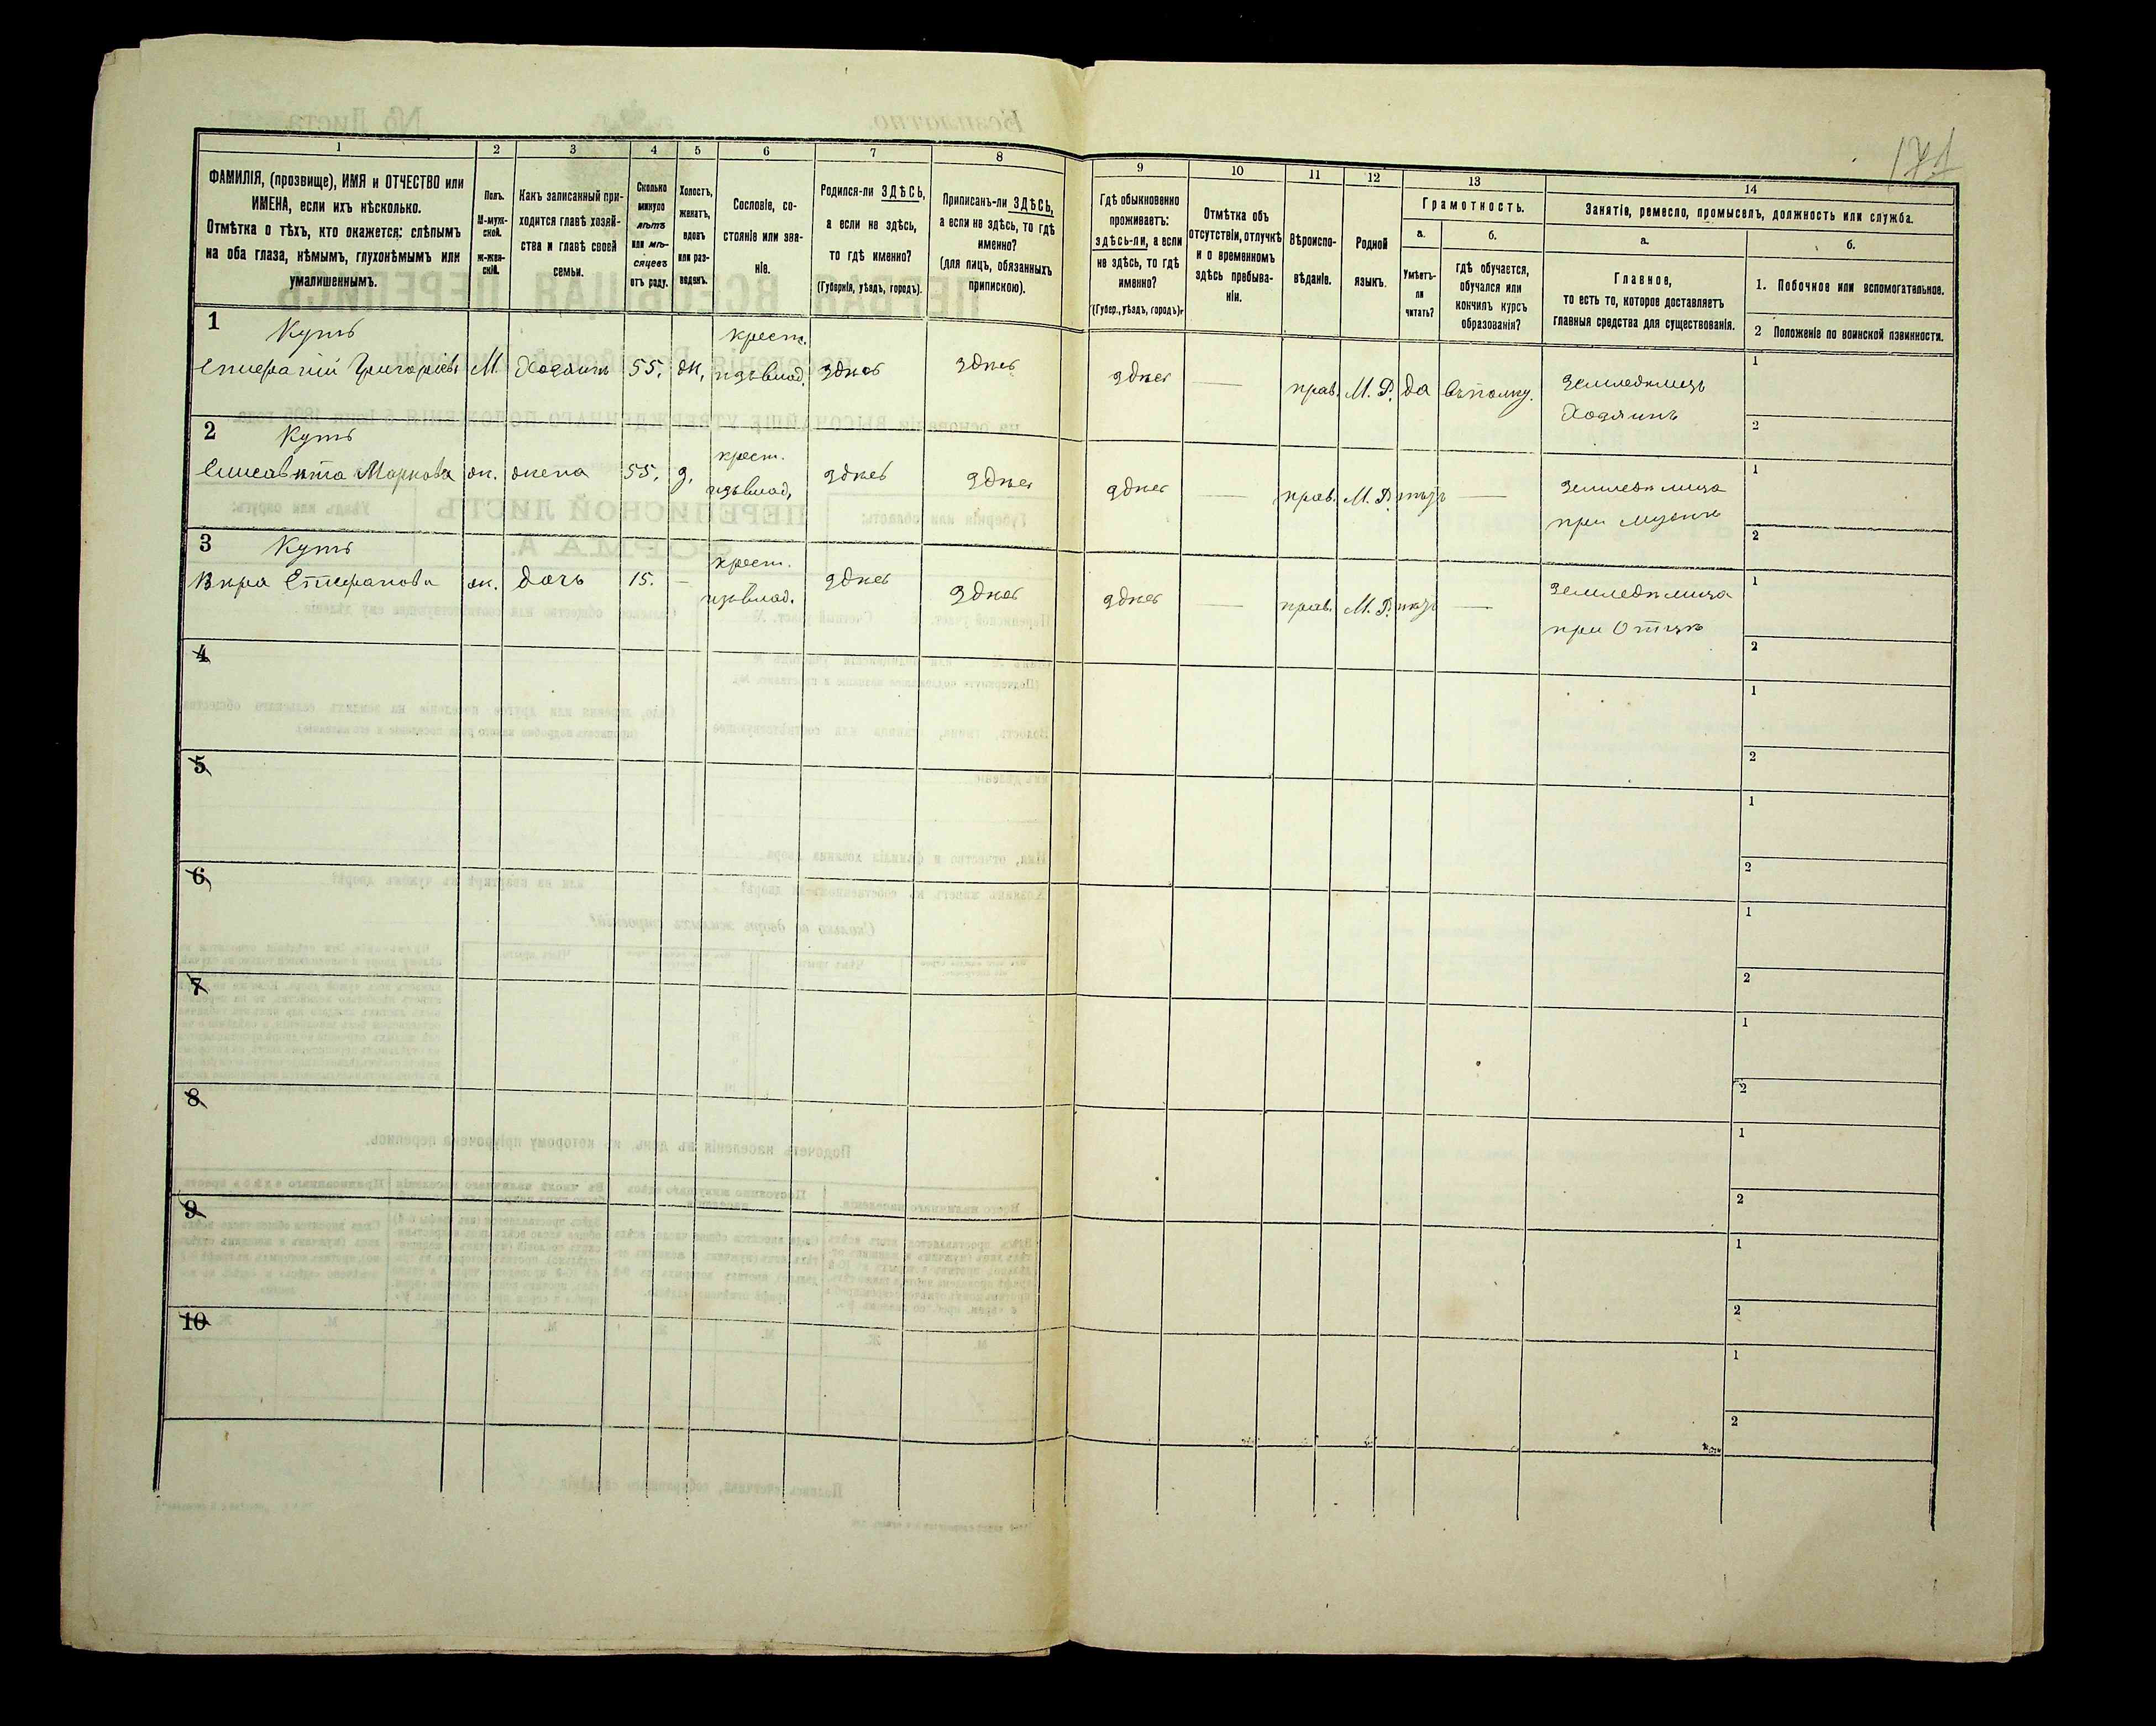 171
1 2 3 4 5 6 7 8 9 10 11 12 13 14
ФАМИЛІЯ, (прозвище), ИМЯ и ОТЧЕСТВО или
ИМЕНА, если ихъ нѣсколько.
Отмѣтка о тѣхъ, кто окажется: слѣпымъ
на оба глаза, нѣмымъ, глухонѣмымъ или
умалишеннымъ.
Полъ.
М-муж-
ской.
ж-жен-
скій.
Какъ записанный при-
ходится главѣ хозяй-
ства и главѣ своей
семьи.
Сколько
минуло
лѣтъ
или мѣ-
сяцевъ
отъ роду.
Холостъ,
женатъ,
вдовъ
или раз-
веденъ.
Сословіе, со-
стояніе или зва-
ніе.
Родился-ли ЗДѢСЬ,
а если не здѣсь,
то гдѣ именно?
(Губернія, уѣздъ, городъ).
Приписанъ-ли ЗДѢСЬ,
а если не здѣсь, то гдѣ
именно?
(для лицъ, обязанныхъ
припискою).
Гдѣ обыкновенно
проживаетъ:
здѣсь-ли, а если
не здѣсь, то гдѣ
именно?
(Губер., уѣздъ, городъ).
Отмѣтка объ
отсутствіи, отлучкѣ
и о временномъ
здѣсь пребыва-
ніи.
Вѣроиспо-
вѣданіе.
Родной
языкъ.
Грамотность.
а.
Умѣетъ-
ли
читать?
б.
гдѣ обучается,
обучался или
кончилъ курсъ
образованія?
Занятіе, ремесло, промыселъ, должность или служба.
а.
Главное,
то есть то, которое доставляетъ
главныя средства для существованія.
б.
1. Побочное или вспомогательное.
2 Положеніе по воинской повинности.
1 Кутъ крест.
Епифаній Григорьевъ М. Хозяинъ 55. ж. изъ влад. здѣсь здѣсь здѣсь — прав. М. Р. да въ полку. Земледѣлецъ 1
Хозяинъ 2
2 Кутъ крест.
Елисавѣта Маркова ж. жена 55. з. изъ влад. здѣсь здѣсь здѣсь — прав. М. Р. нѣтъ — Земледѣлица 1
при мужѣ 2
3 Кутъ крест.
Вѣра Епифанова ж. дочь 15. — изъ влад. здѣсь здѣсь здѣсь — прав. М. Р. нѣтъ — Земледѣлица 1
при Отцѣ 2
4 1
2
5 1
2
6 1
2
7 1
2
8 1
2
9 1
2
10 1
2